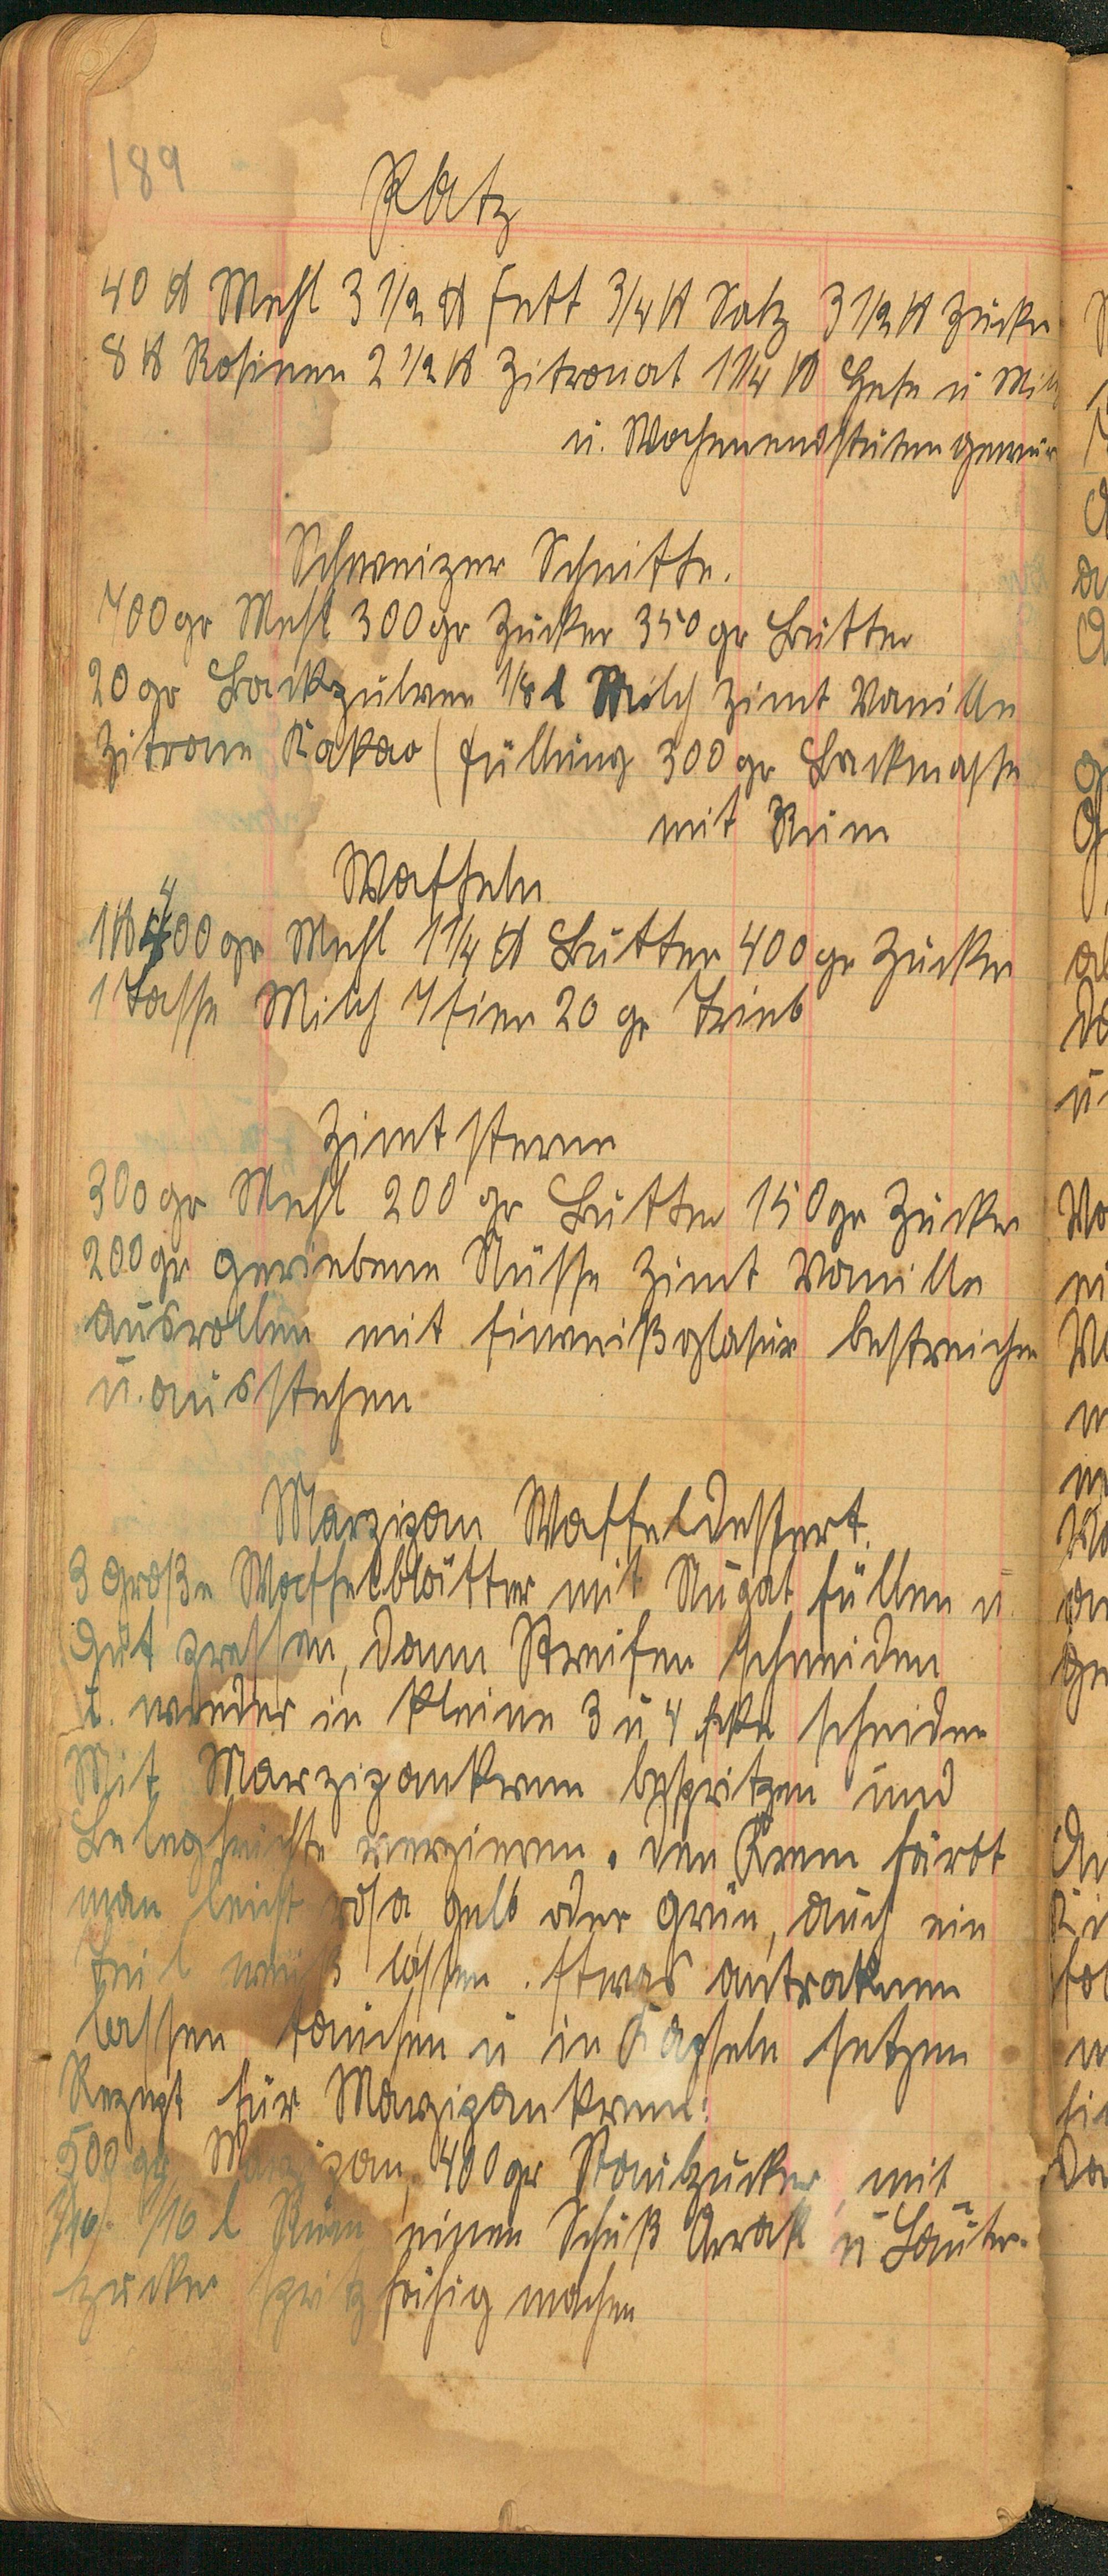 189
Platz
40 ℔ Mehl 3 1/2 ℔ Fett 3/4 ℔ Salz 3 1/2 ℔ Zucker
8 ℔ Rosinen 2 1/2 ℔ Zitronat 1 1/4 ℔ Hefe u Milch
u. Wochenendstutengewür
Schweizer Schnitte.
700 gr Mehl 300 gr Zucker 350 gr Butter
20 gr Backpulver 1/8 l Milch Zimt Vanille
Zitrone Kakao (Füllung 300 gr Backmasse
mit Rum
Waffeln
1 ℔ 400 gr Mehl 1 1/4 ℔ Butter 400 gr Zucker
1 Tasse Milch 7 Eier 20 gr Trieb
Zimtsterne
300 gr Mehl 200 gr Butter 150 gr Zucker
200 gr geriebene Nüsse Zimt Vanille
ausrollen mit Eiweißglasur bestreichen
u. ausstehen
Marzipan Waffeldessert.
3 große Waffelblätter mit Nugat füllen u.
gut pressen, dann Streifen schneiden
u. wieder in kleine 3 u 4 Ecke scheiden
Mit Marzipankrem bespritzen und
Belegfrüchte verzieren. Den Krem färbt
man leicht rosa gelb oder grün, auch ein
Teil weiß lassen. Etwas antroknen
lassen tauchen u in Kapseln setzen
Rezept für Marzipankrem:
500 gr Marzipan, 400 gr Staubzucker, mit
1/16 l Rum einen Schuß Arrak u Läuter-
zucker spritzfähig machen